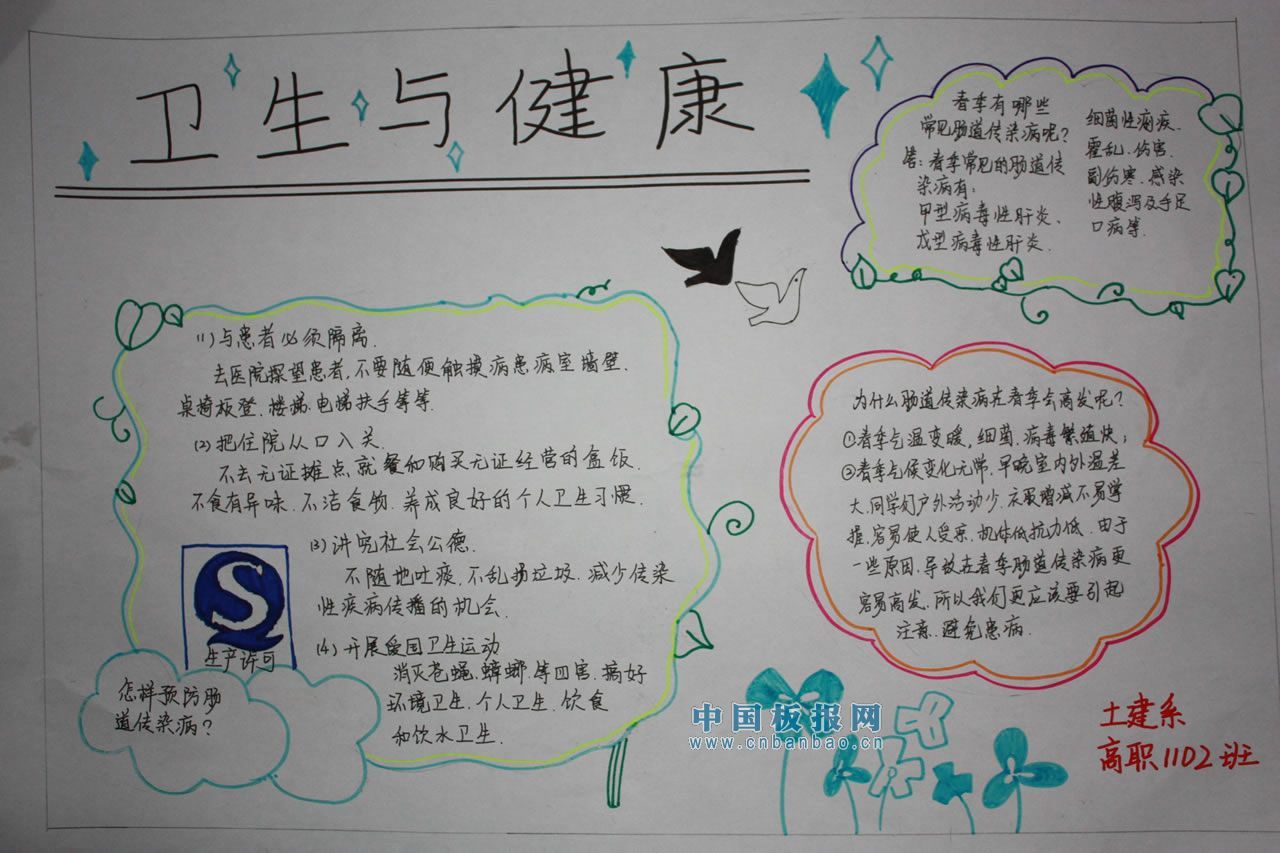 卫生与健康
春季有哪些
常见肠道传染病呢？
答：春季常见的肠道传
染病有：
甲型病毒性肝炎、
戊型病毒性肝炎.
细菌性痢疾.
霍乱.伤害.
副伤寒.感染
性腹泻及手足
口病等.
(1)与患者必须隔离.
去医院探望患者,不要随便触摸病患病室墙壁.
桌椅板登.楼梯.电梯扶手等等.
(2)把住院从口入关.
不去无证摊点就餐和购买无证经营的盒饭.
不食有异味.不洁食物.养成良好的个人卫生习惯.
(3)讲究社会公德.
不随地吐痰,不乱扔垃圾.减少传染
性疾病传播的机会.
(4)开展爱国卫生运动
消灭苍蝇.蟑螂.等四害.搞好
环境卫生.个人卫生.饮食
和饮水卫生.
S
生产许可
怎样预防肠
道传染病？
为什么肠道传染病在春季会高发呢？
①春季气温变暖,细菌.病毒繁殖快；
②春季气候变化无常.早晚室内外温差
大.同学们户外活动少.衣服增减不易掌
握,容易使人受凉.机体低抗力低.由于
一些原因.导致在春季肠道传染病更
容易高发.所以我们更应该要引起
注意.避免患病.
中国板报网
www.cnbanbao.cn
土建系
高职1102班